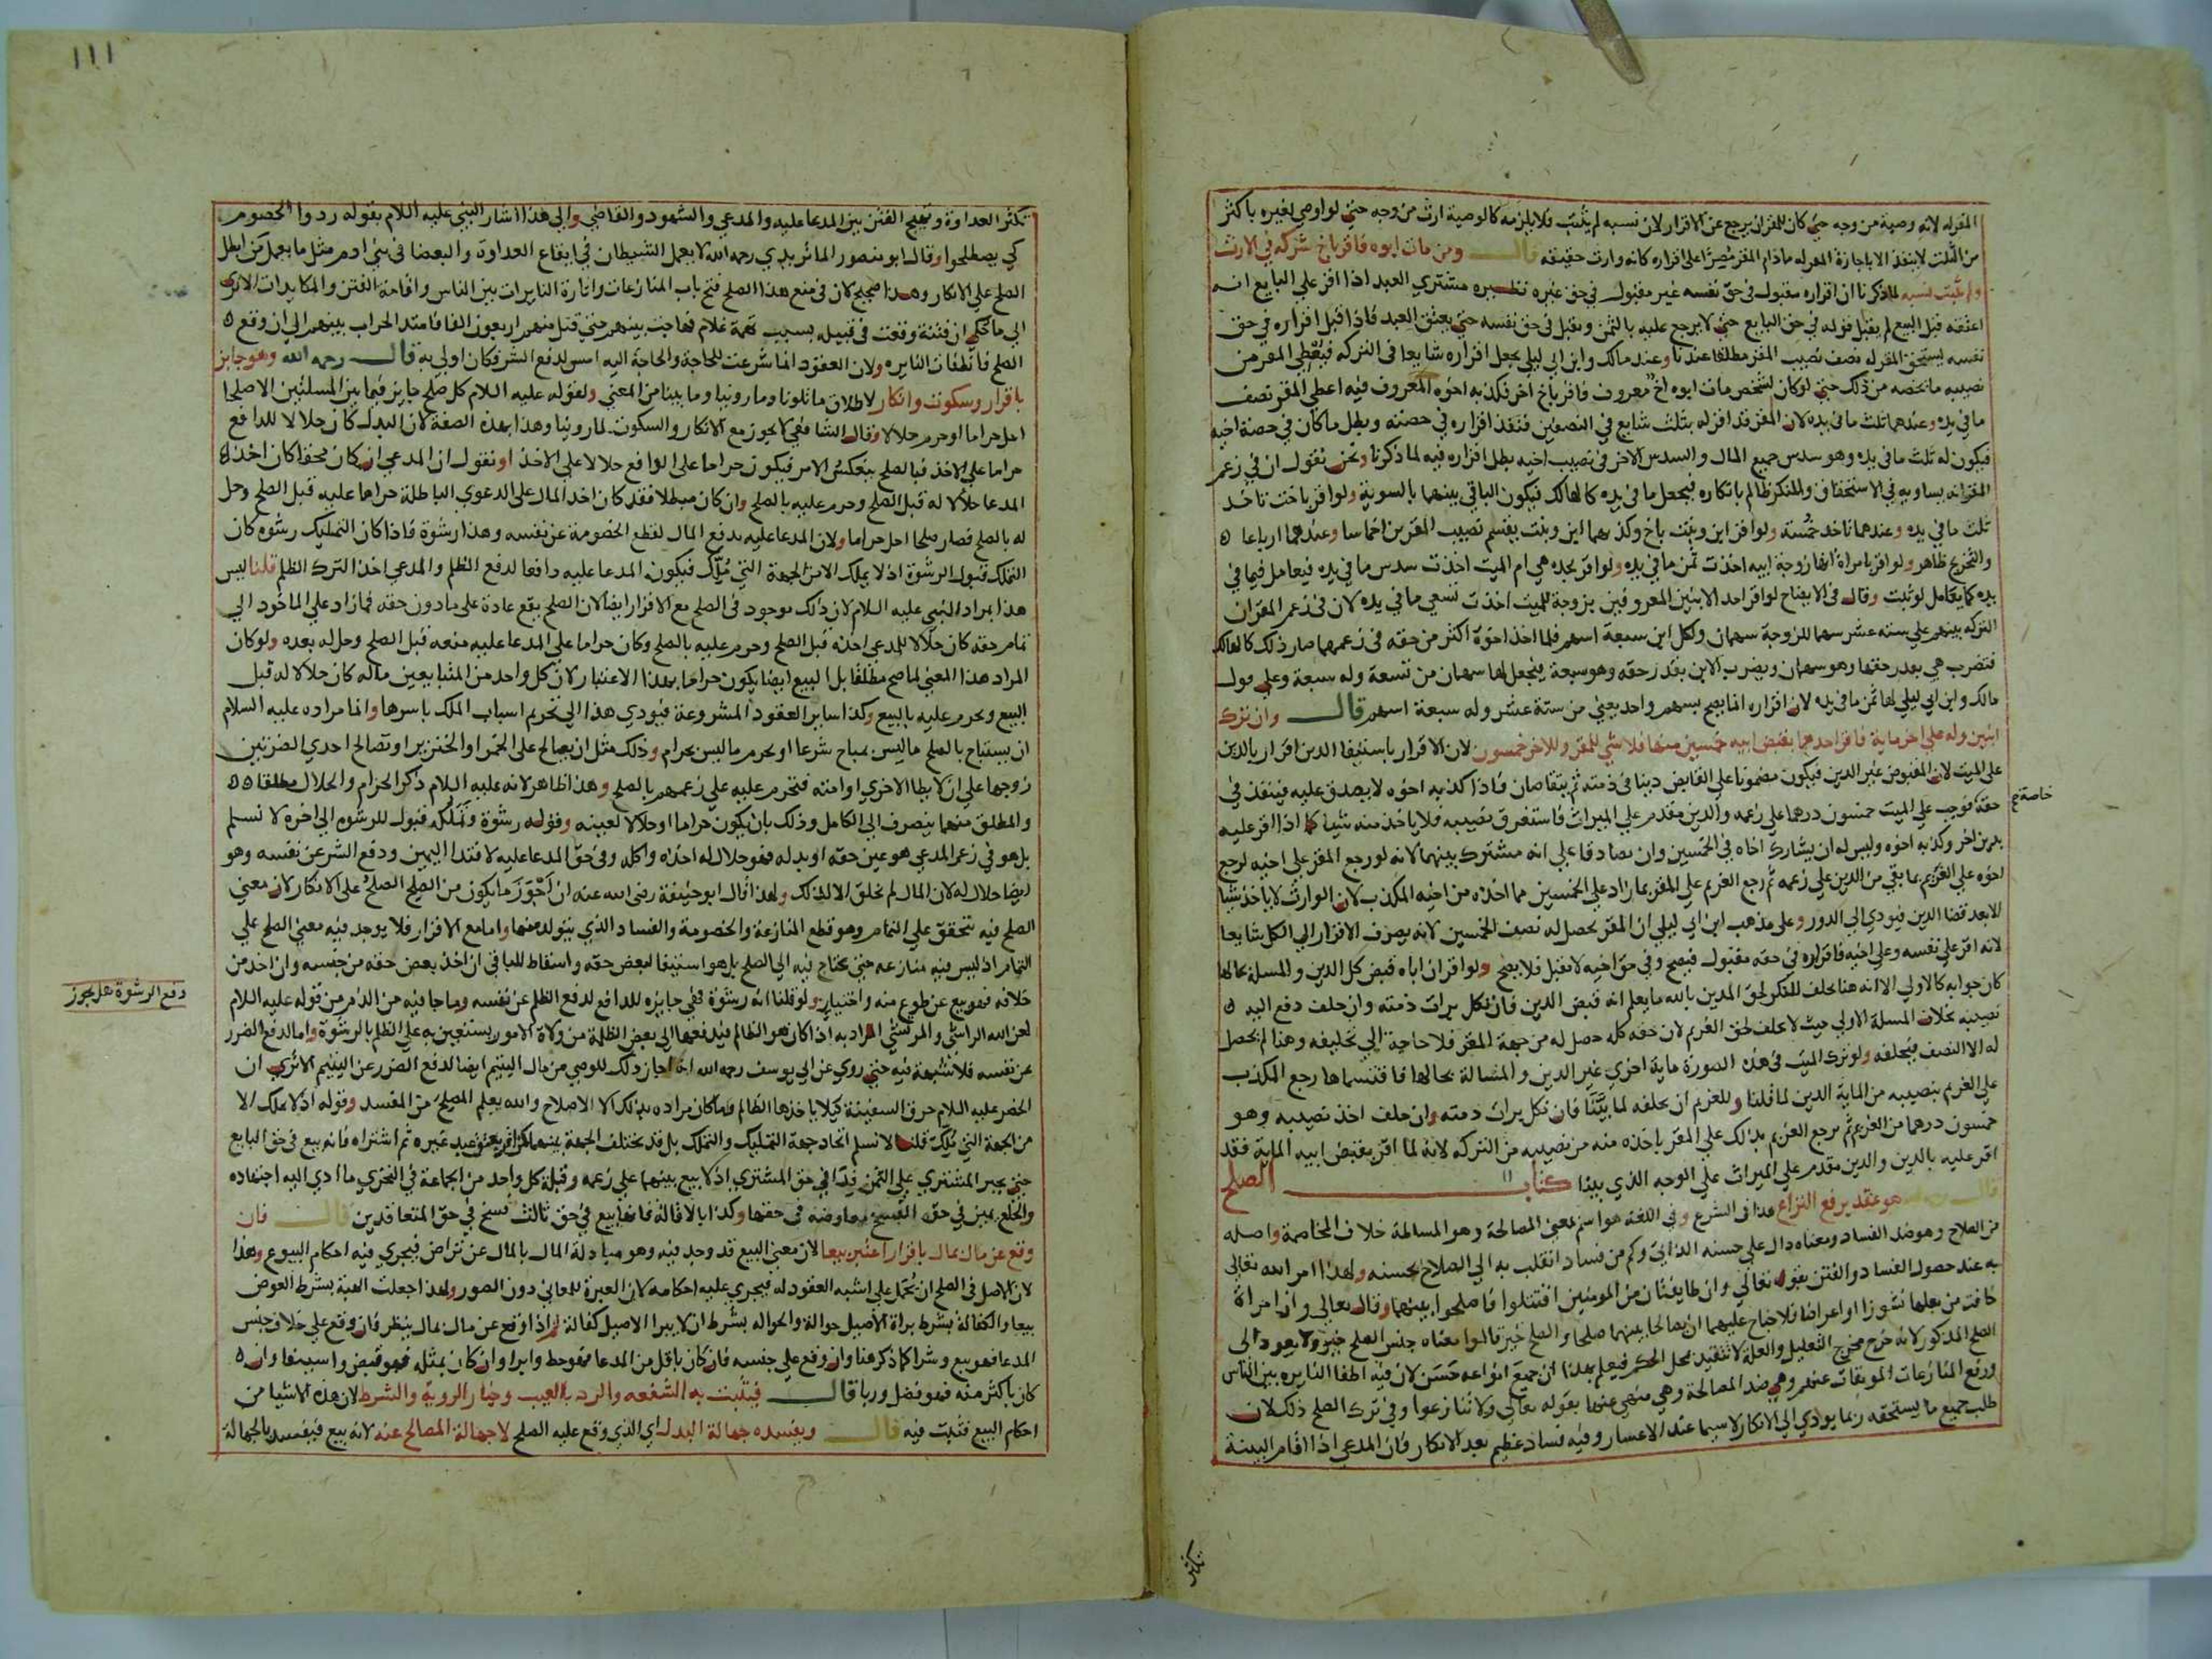 المقر له لانه وصية من وجه حتي كان للمقر ان يرجع عن الاقرار لان نسبه لم يثبت فلا يلزمه كالوصية ارث من وجه حتي لو اوصي لغيره باكثر
من الثلث لا ينفذ الا باجازة المقر له ما دام المقر مصرا علي اقراره كانه وارث حقيقة قال ومن مات ابوه فاقر باخ شركه في الارث
ولم يثبت نسبه لما ذكرنا ان اقراره مقبول في حق نفسه غير مقبول في حق غيره نظيره مشتري العبد اذا اقر علي البايع انه
اعتقه قبل البيع لم يقبل قوله في حق البايع حتي لا يرجع عليه بالثمن ويقبل في حق نفسه حتي يعتق العبد فاذا قبل اقراره في حق
نفسه يستحق المقر له نصف نصيب المقر مطلقا عندنا وعند مالك وابن ابي ليلي يجعل اقراره شايعا في التركه فيعطي المقر من
نصيبه ما يخصه من ذلك حتي لو كان لشخص مات ابوه اخ معروف فاقر باخ اخر فكذبه اخوه المعروف فيه اعطي المقر نصف
ما في يده وعندهما ثلث ما في يده لان المقر قد اقر له بثلث شايع في النصفين فنفذ اقراره في حصته وبطل ما كان في حصة اخيه
فيكون له ثلث ما في يده وهو سدس جميع المال والسدس الاخر في نصيب اخيه بطل اقراره فيه لما ذكرنا ونحن نقول ان في زعم
المقر انه يساويه في الاستحقاق والمنكر ظالم بانكاره فيجعل ما في يده كالهالك فيكون الباقي بينهما بالسوية ولو اقر باخت تاخذ
ثلث ما في يده وعندهما تاخذ خمسه ولو اقر ابن وبنت باخ وكذبهما ابن وبنت يقسم نصيب المقرين اخماسا وعندهما ارباعا
والتخريج ظاهر ولو اقر بامراة انها زوجة ابيه اخذت ثمن ما في يده ولو اقر بجده هي ام الميت اخذت سدس ما في يده فيعامل فيما في
يده كما يعامل لو ثبت وقال في الايضاح لو اقر احد الابنين المعروفين بزوجة للميت اخذت تسعي ما في يده لان في زعم المقر ان
التركه بينهم علي ستة عشر سهما للزوجة سهمان ولكل ابن سبعة اسهم فلما اخذ اخوه اكثر من حقه في زعمهما صار ذلك كالهالك
فتضرب هي بقدر حقها وهو سهمان ويضرب الابن بقدر حقه وهو سبعة فيجعل لها سهمان من تسعة وله سبعة وعلي قول
مالك وابن ابي ليلي لها ثمن ما في يده لان اقراره انما يصح بسهم واحد يعني من ستة عشر وله سبعة اسهم قال وان ترك
ابنين وله علي اخر ماية فاقر احدهما بقبض ابيه خمسين منها فلا شي للمقر وللاخر خمسون لان الاقرار باستيفا الدين اقرار بالدين
علي الميت لان المقبوض عبر الدين فيكون مضمونا علي القابض دينا في ذمته ثم يتقاصان فاذا كذبه اخوه لا يصدق عليه فينفذ في
حقه فوجب علي الميت خمسون درهما علي زعمه والدين مقدم علي الميراث فاستغرق نصيبه فلا ياخذ منه شيا كما اذا اقر عليه
بدين اخر وكذبه اخوه وليس له ان يشارك اخاه في الخمسين وان تصادقا علي انه مشترك بينهما لانه لو رجع المقر علي اخيه لرجع
اخوه علي الغريم بما بقي من الدين علي زعمه ثم رجع الغريم علي المقر بما زاد علي الخمسين مما اخذه من اخيه المكذب لان الوارث لا ياخذ شيا
الا بعد قضا الدين فيودي الي الدور وعلي مذهب ابن ابي ليلي ان المقر يحصل له نصف الخمسين لانه يصرف الاقرار الي الكل شايعا
لانه اقر علي نفسه وعلي اخيه فاقراره في حقه مقبول فيصح وفي حق اخيه لا يقبل فلا يصح ولو اقر ان اباه قبض كل الدين والمسلة بحالها
كان جوابه كالاولي الا انه هنا يحلف المنكر لحق المدين بالله ما يعلم انه قبض الدين فان نكل برات ذمته وان حلف دفع اليه
نصيبه بخلاف المسلة الاولي حيث لا يحلف لحق الغريم لان حقه كله حصل له من جهة المقر فلا حاجة الي تحليفه وهنا لم يحصل
له الا النصف فيحلفه ولو ترك الميت في هذه الصورة ماية اخري غير الدين والمسالة بحالها فاقتسماها رجع المكذب
علي الغريم بنصيبه من الماية الدين لما قلنا وللغريم ان يحلفه لما بينا فان نكل برات ذمته وان حلف اخذ نصيبه وهو
خمسون درهما من الغريم ثم يرجع الغريم بذلك علي المقر ياخذه منه من نصيبه من التركه لانه لما اقر بقبض ابيه الماية فقد
اقر عليه بالدين والدين مقدم علي الميراث علي الوجه الذي بينا كتاب الصلح
قال رحمه الله هو عقد يرفع النزاع هذا في الشرع وفي اللغة هو اسم لمعني المصالحة وهو المسالمة خلاف المخاصمة واصله
من الصلاح وهو ضد الفساد ومعناه دال علي حسنه الذاتي وكم من فساد انقلب به الي الصلاح بحسنه ولهذا امر الله تعالي
به عند حصول الفساد والفتن بقوله تعالي وان طايفتان من المومنين اقتتلوا فاصلحوا بينهما وقال تعالي وان امراة
خافت من بعلها نشوزا او اعراضا فلا جناح عليهما ان يصالحا بينهما صلحا والصلح خير قالوا معناه جنس الصلح خير ولا يعود الي
الصلح المذكور لانه خرج مخرج التعليل والعلة لا تتقيد بمحل الحكم فيعلم بهذا ان جميع انواعه حسن لان فيه اطفا النايره بين الناس
ورفع المنازعات الموبقات عنهم وهي ضد المصالحة وهي منهي عنها بقوله تعالي ولا تنازعوا وفي ترك الصلح ذلك لان
طلب جميع ما يستحقه ربما يودي الي الانكار لا سيما عند الاعسار وفيه فساد عظيم بعد الانكار فان المدعي اذا اقام البينة
خاصة ح
تكثر
١١١
تكثر العداوة وتهيج الفتن بين المدعا عليه والمدعي والشهود والقاضي والي هذا اشار النبي عليه اللام بقوله ردوا الخصوم
كي يصطلحوا وقال ابو منصور الماتريدي رحمه الله لا يعمل الشيطان في ايقاع العداوة والبغضا في بني ادم مثل ما يعمل من ابطل
الصلح علي الانكار وهذا صحيح لان في منع هذا الصلح فتح باب المنازعات واثارة النايرات بين الناس واقامة الفتن والمكابدات الا تري
الي ما حكي ان فتنة وقعت في قبيله بسبب تهمة غلام فهاجت بينهم حتي قتل منهم اربعون الفا فامتد الحراب بينهم الي ان وقع
الصلح فانطفات النايره ولان العقود انما شرعت للحاجة والحاجة اليه امس لدفع الشر فكان اولي به قال رحمه الله وهو جايز
باقرار وسكوت وانكار لاطلاق ما تلونا وما روينا وما بينا من المعني ولقوله عليه اللام كل صلح جايز فيما بين المسلمين الا صلحا
احل حراما او حرم حلالا وقال الشافعي لا يجوز مع الانكار والسكوت لما روينا وهذا بهذه الصفة لان البدل كان حلالا للدافع
حراما علي الاخذ فبالصلح ينعكس الامر فيكون حراما علي الدافع حلالا علي الاخذ او نقول ان المدعي ان كان محقا كان اخذه
المدعا حلالا له قبل الصلح وحرم عليه بالصلح وان كان مبطلا فقد كان اخذ المال علي الدعوي الباطلة حراما عليه قبل الصلح وحل
له بالصلح فصار صلحا احل حراما ولان المدعا عليه يدفع المال لقطع الخصومة عن نفسه وهذا رشوة فاذا كان التمليك رشوه كان
التملك قبول الرشوة اذ لا يملك الا من الجهة التي ملك فيكون المدعا عليه دافعا لدفع الظلم والمدعي اخذ لترك الظلم قلنا ليس
هذا بمراد النبي عليه اللام لان ذلك موجود في الصلح مع الاقرار ايضا لان الصلح يقع عادة علي ما دون حقه فما زاد علي الماخوذ الي
تمام حقه كان حلالا للمدعي اخذه قبل الصلح وحرم عليه بالصلح وكان حراما علي المدعا عليه منعه قبل الصلح وحل له بعده ولو كان
المراد هذا المعني لما صح مطلقا بل البيع ايضا يكون حراما بهذا الاعتبار لان كل واحد من المتبايعين ماله كان حلالا له قبل
البيع ويحرم عليه بالبيع وكذا ساير العقود المشروعة فيودي هذا الي تحريم اسباب الملك باسرها وانما مراده عليه السلام
ان يستباح بالصلح ما ليس بمباح شرعا او يحرم ما ليس بحرام وذلك مثل ان يصالح علي الخمر او الخنزير او تصالح احدي الضرتين
زوجها علي ان لا يطا الاخري او امته فتحرم عليه علي زعمهم بالصلح وهذا ظاهر لانه عليه اللام ذكر الحرام والحلال مطلقا
والمطلق منهما ينصرف الي الكامل وذلك بان يكون حراما او حلالا لعينه وقوله رشوة وتملكه قبول للرشوه الي اخره لا نسلم
بل هو في زعم المدعي هو عين حقه او بدله فهو حلال له اخذه واكله وفي حق المدعا عليه لافتدا اليمين ودفع الشر عن نفسه وهو
ايضا حلال له لان المال لم يخلق الا لذلك ولهذا قال ابو حنيفة رضي الله عنه ان اجوز ما يكون من الصلح الصلح علي الانكار لان معني
الصلح فيه يتحقق علي التمام وهو قطع المنازعة والخصومة والفساد الذي يتولد منهما واما مع الاقرار فلا يوجد فيه معني الصلح علي
التمام اذ ليس فيه منازعه حتي يحتاج فيه الي الصلح بل هو استيفا لبعض حقه واسقاط للباقي ان اخذ بعض حقه من جنسه وان اخذ من
خلافه فهو بيع عن طوع منه واختيار ولو قلنا انه رشوة فهي جايزه للدافع لدفع الظلم عن نفسه وما جا فيه من الذم من قوله عليه اللام
لعن الله الراشي والمرتشي المراد به اذا كان هو الظالم فيدفعها الي بعض الظلمة من ولاة الامور يستعين به علي الظلم بالرشوة واما لدفع الضرر
عن نفسه فلا شبهة فيه حتي روي عن ابي يوسف رحمه الله انه اجاز ذلك للوصي من مال اليتيم ايضا لدفع الضرر عن اليتيم الا تري ان
الخضر عليه اللام خرق السفينة كيلا ياخذها الظالم وما كان مراده بذلك الا الاصلاح والله يعلم المصلح من المفسد وقوله اذ لا يملك الا
من الجهة التي ملك قلنا لا نسلم اتحاد جهة التمليك والتملك بل قد يختلف الجهة بينهما كمن اقر بعتق عبد غيره ثم اشتراه فانه بيع في حق البايع
حتي يجبر المشتري علي الثمن فدا في حق المشتري اذ لا بيع بينهما علي زعمه وقبلة كل واحد من الجماعة في التحري ما ادي اليه اجتهاده
والخلع يمين في حقه الفسخ معاوضه في حقها وكذا بالاقالة فانها بيع في حق ثالث فسخ في حق المتعاقدين قال فان
وقع عن مال بمال باقرار اعتبر بيعا لان معني البيع قد وجد فيه وهو مبادلة المال بالمال عن تراض فيجري فيه احكام البيوع وهذا
لان الاصل في الصلح ان يحمل علي اشبه العقود له فيجري عليه احكامه لان العبرة للمعاني دون الصور ولهذا جعلت الهبة بشرط العوض
بيعا والكفالة بشرط براة الاصيل حوالة والحواله بشرط ان لا يبرا الاصيل كفالة ثم اذا وقع عن مال بمال ينظر فان وقع علي خلاف جنس
المدعا فهو بيع وشرا كما ذكر هنا وان وقع علي جنسه فان كان باقل من المدعا فهو حط وابرا وان كان بمثله فهو قبض واستيفا وان
كان باكثر منه فهو فضل وربا قال فيثبت به الشفعه والرد بالعيب وخيار الروية والشرط لان هذه الاشيا من
احكام البيع فثبت فيه قال ويفسده جهالة البدل اي الذي وقع عليه الصلح لا جهالة المصالح عنه لانه بيع فيفسد بالجهالة
دفع الرشوة هل يجوز